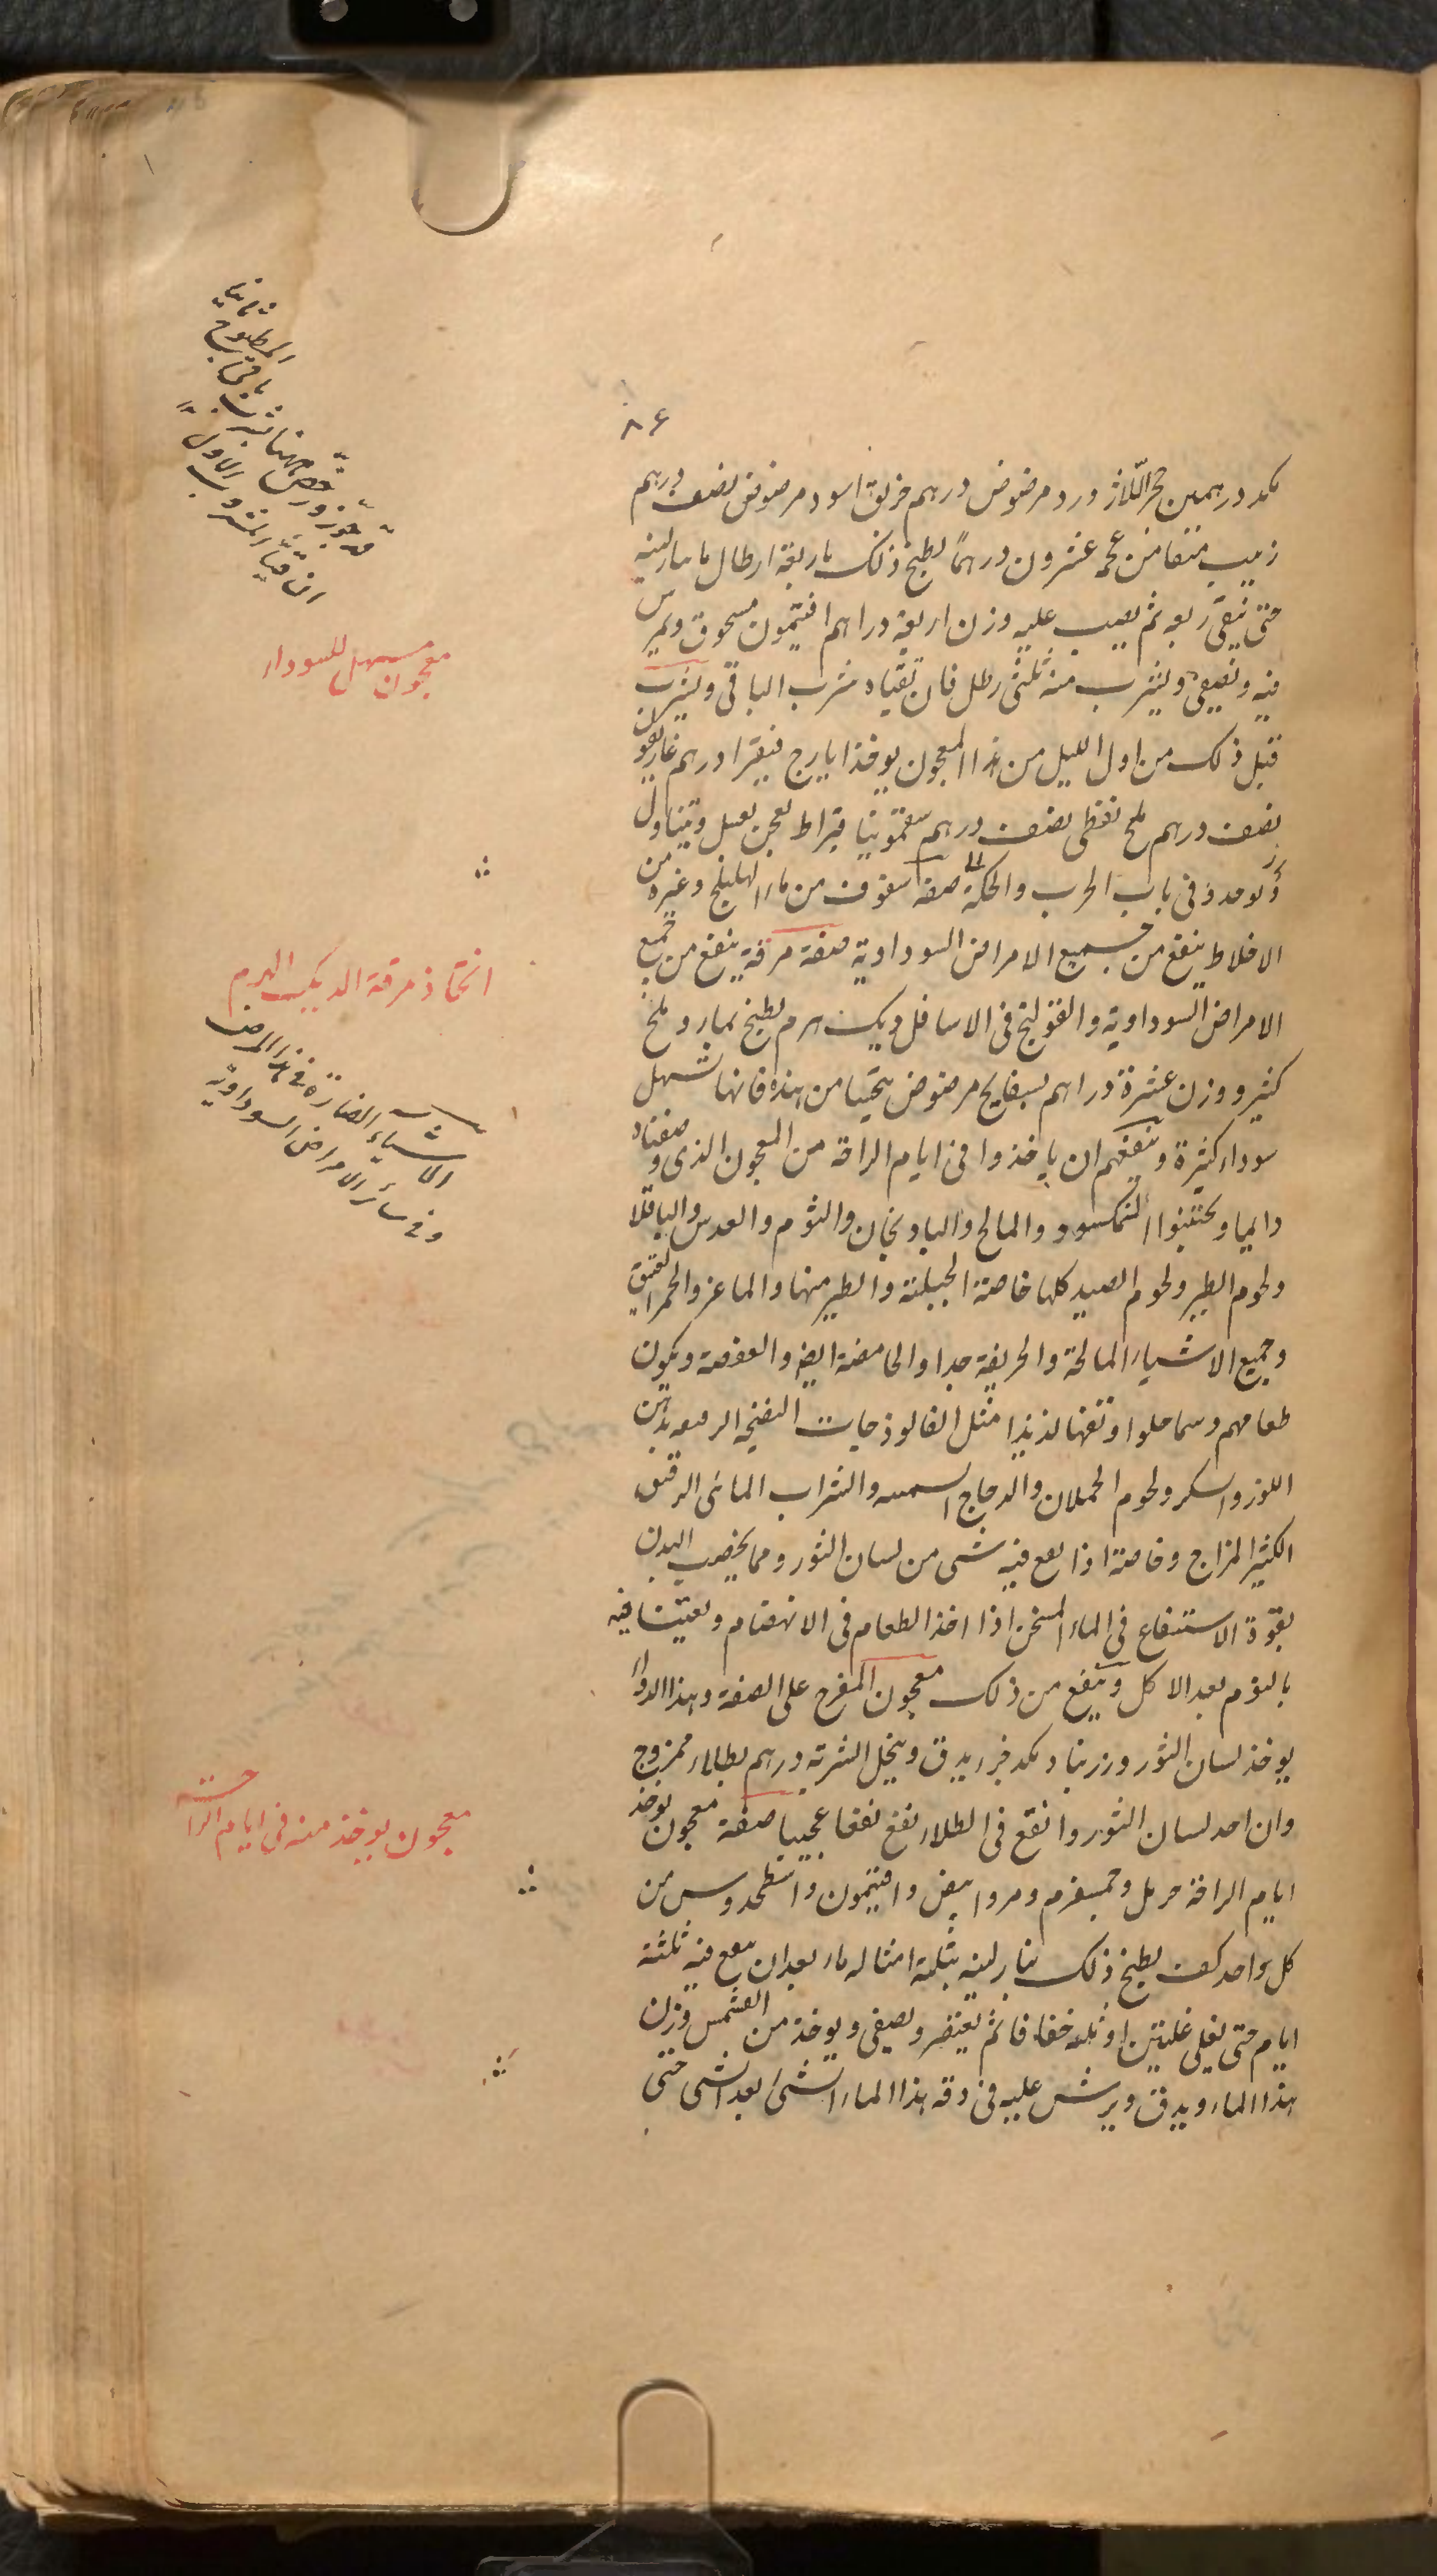 ٨٦
درهمين حجر اللازورد مرضوض درهم خربق اسود مرضوض نصف درهم
زبيب منقا من عجمه عشرون درهمًا يطبخ ذلك باربعة ارطال ما بنار لينه
حتى يبقى ربعه ثم يصب عليه وزن اربعة دراهم افتيمون مسحوق ويمرس
فيه ويصفى ويشرب منه ثلثى رطل فان تقياه شرب الباقى ويشرب
قبل ذلك من اول الليل من هذا المعجون يوخذ ايارج فيقرا درهم غاريقون
نصف درهم ملح نفطى نصف درهم سقمونيا قيراط يعجن بعسل ويتناول
فى باب الجرب والحكة صفة سفوف من ماء الهليلج وغيره من
الاخلاط ينفع من جميع الامراض السوداوية صفة مرقة ينفع من جميع
الامراض السوداوية والقولنج فى الاسافل ديك هرم يطبخ بماء وملح
كثير ووزن عشرة دراهم بسفايج مرضوض يتحسا من هذه فانها تسهل
سوداء كثيرة وينفعهم ان ياخذوا فى ايام الراحة من المعجون الذى وصفناه
دايما ويجتنبوا النمكسود والمالح والبادنجان والثوم والعدس والباقلا
ولحوم الطير ولحوم الصيد كلها خاصة الجبلية والطير منها والماعز والخمر العتيق
وجميع الاشياء المالحة والحريفة جدا والحامضة ايضا والعفصة ويكون
طعامهم دسما حلوا وتفها لذيذا مثل الفالوذجات النضيجه الرطبه بدهن
اللوز والسكر ولحوم الحملان والدجاج السمينه والشراب المائى الرقيق
الكثير المزاج وخاصة اذا يقع فيه شى من لسان الثور ومما يخصب البدن
بقوة الاستنقاع فى الماء المسخن اذا اخذ الطعام فى الانهضام ويعتنا فيه
بالنوم بعد الاكل وينفع من ذلك معجون المفرح على الصفة وهذا الدواء
يوخذ لسان الثور وزرنباد يدق وينخل الشربة درهم بطلاء ممزوج
وان اخذ لسان الثور وانقع فى الطلاء نفع نفعا عجيبا صفة معجون يوخذ
ايام الراحة حرمل وحمسفرم ومرو ابيض وافتيمون واسطوخدوس من
كل واحد كف يطبخ ذلك بنار لينه بثلثة امثاله ماء بعد ان ينقع فيه ثلثة
ايام حتى يغلى غليتين او ثلثه خفافا ثم يعتصر ويصفى ويوخذ من المشمس وزن
هذا الماء ويدق ويرش عليه فى دقه هذا الماء الشى بعد الشى حتى
قد جوّز ورخّص ههنا بشرب باقى المطبوخ ثانيا
ان قيّأ المشروب الاول
معجون مسهل للسوداء
اتخاذ مرقة الديك الهرم
الاشياء الضارّة فى هذا المرض
وفى سائر الامراض السوداويّة
معجون يوخذ منه فى ايام الراحة